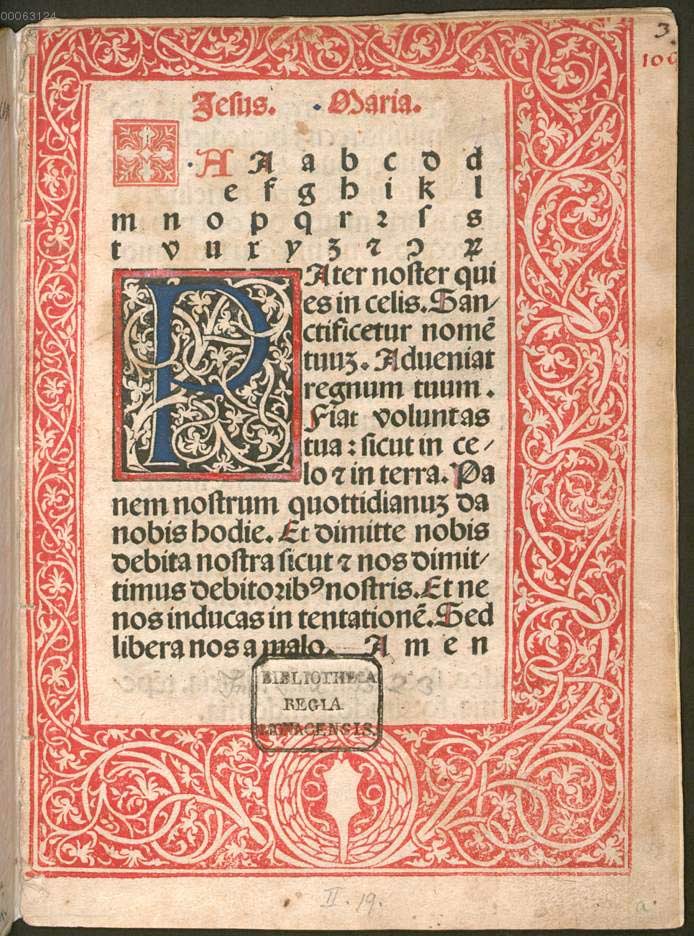 00063124
3
109
Jesus. Maria.
A A a b c d d
e f g h i k l
m n o p q r ꝛ ſ s
t v u x y ʒ ⁊ ꝯ ꝝ
PAter noſter qui
es in celis. San⸗
ctificetur nomē
tuuʒ. Adueniat
regnum tuum.
Fiat voluntas
tua: sicut in ce⸗
lo ⁊ in terra. Pa
nem noſtrum quottidianuʒ da
nobis hodie. Et dimitte nobis
debita noſtra sicut ⁊ nos dimit⸗
timus debitoꝛibꝰ noſtris. Et ne
nos inducas in tentationē. Sed
libera nos a malo. A m e n
BIBLIOTHECA
REGIA
MONACENSIS.
II. 19.
a